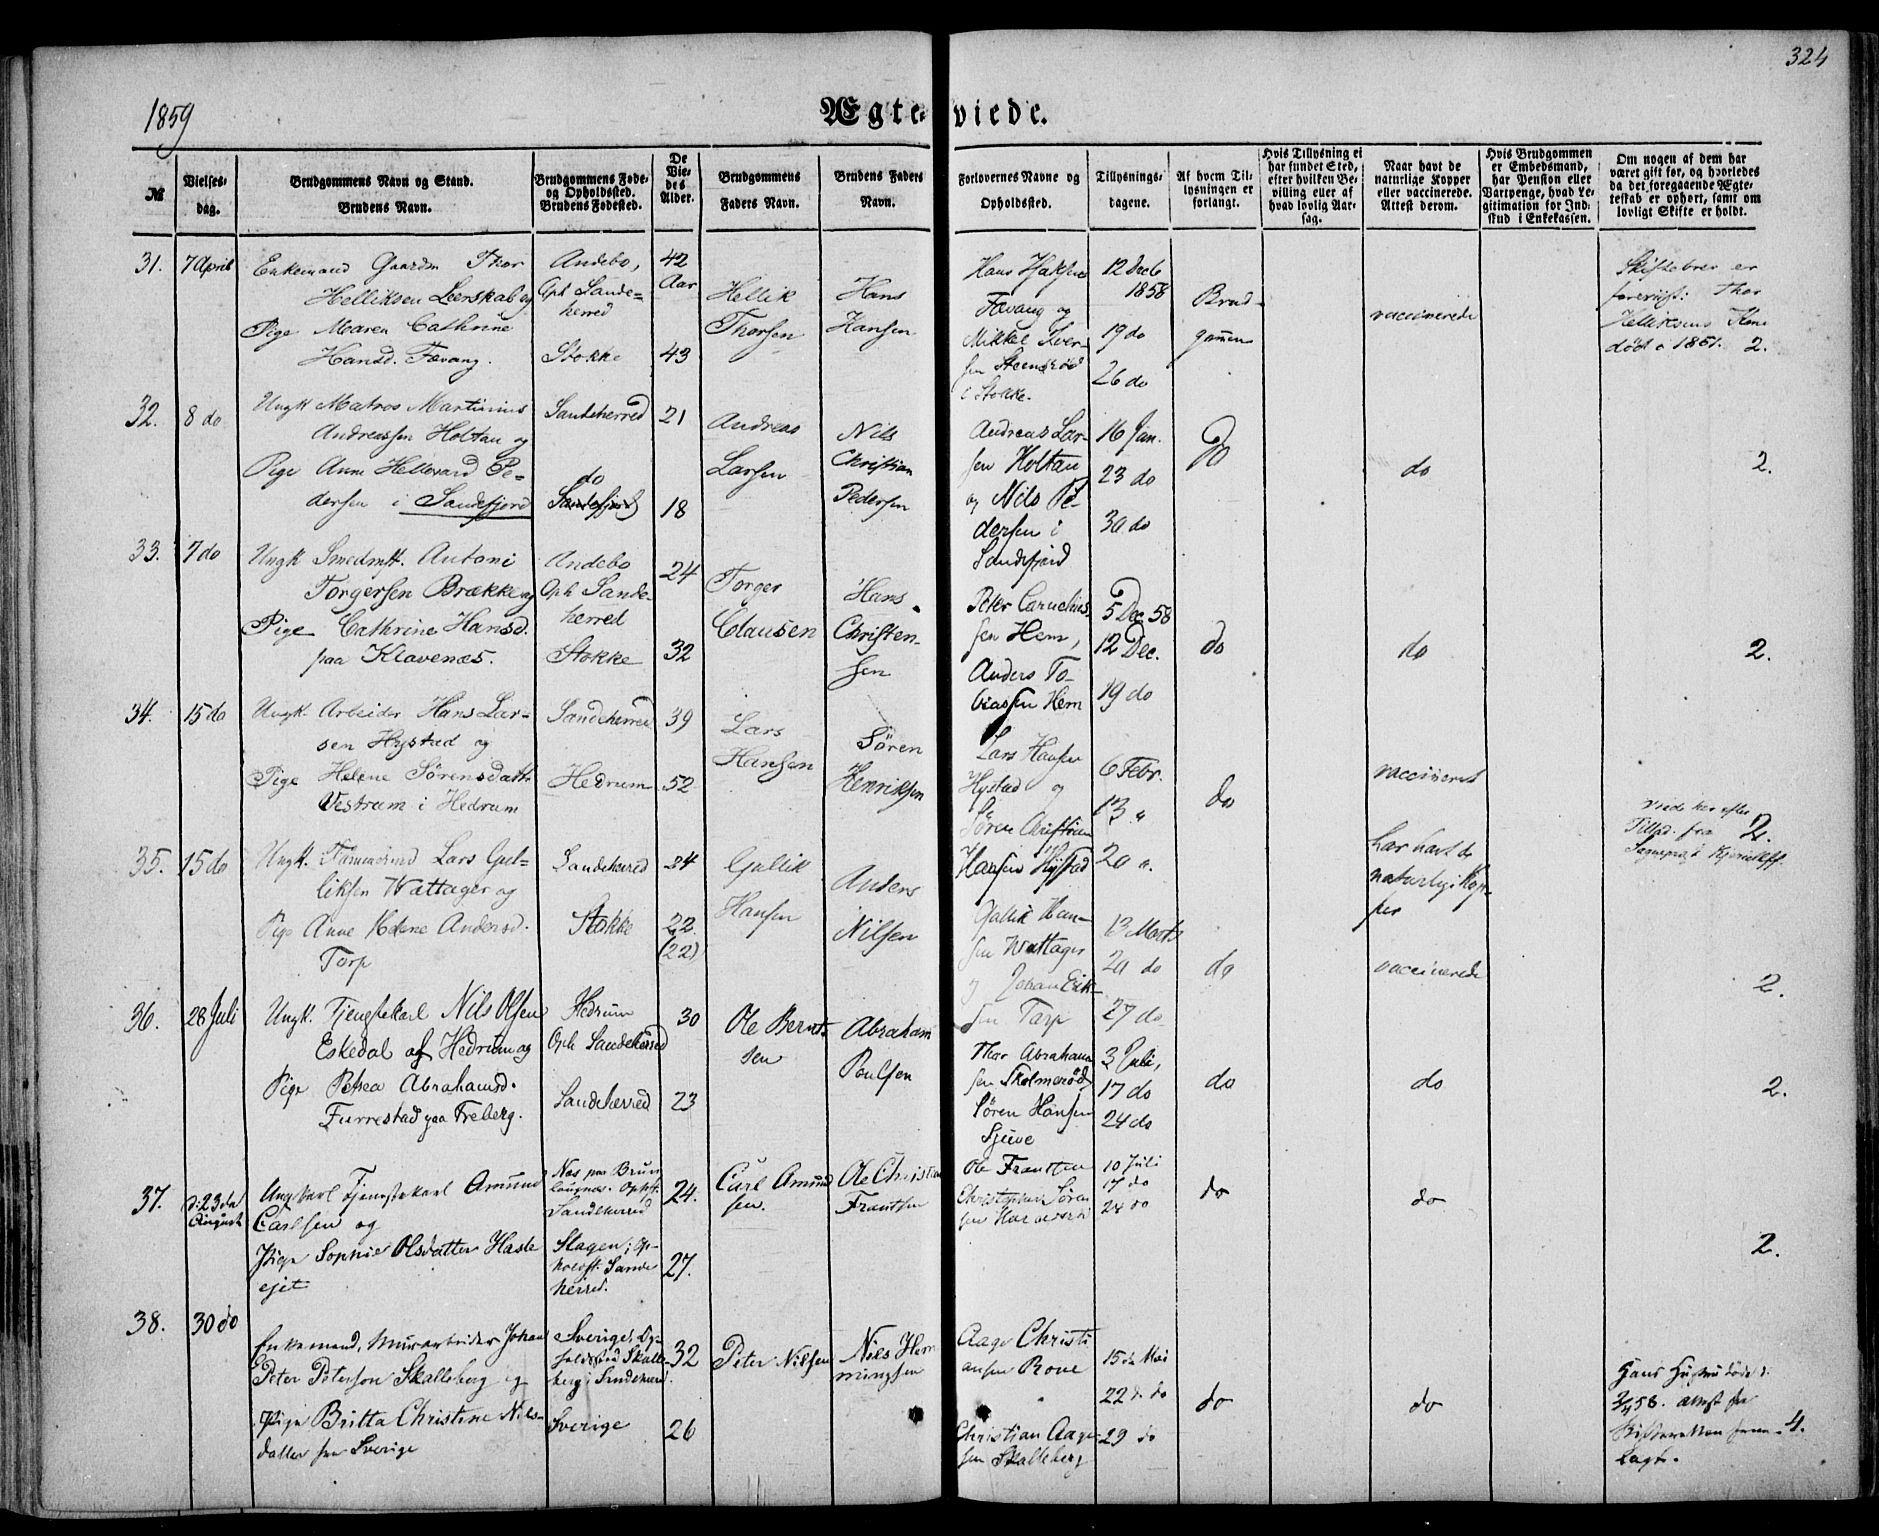 324
1859
Ægteviede.
№
Vielses-
dag.
Brudgommens Navn og Stand.
Brudens Navn.
Brudgommens Føde-
og Opholdssted.
Brudens Fødested.
De
Vie-
des
Alder.
Brudgommens
Faders Navn.
Brudens Faders
Navn.
Forlovernes Navne og
Opholdssted.
Tillysnings-
dagene.
Af hvem Til-
lysningen er
forlangt.
Hvis Tillysning ei
har fundet Sted,
efter hvilken Be-
villing eller af
hvad lovlig Aar-
sag.
Naar havt de
naturlige Kopper
eller vaccinerede.
Attest derom.
Hvis Brudgommen
er Embedsmand,
har Pension eller
Vartpenge, hvad Le-
gitimation for Ind-
skud i Enkekassen.
Om nogen af dem har
været gift før, og hvorledes
da det foregaaende Ægte-
teskab er ophørt, samt om
lovligt Skifte er holdt.
31.
7 April
Enkemand Gaardm Thor
Helliksen Leerskal og
Pige Maren Cathrine
Hansd. Fævang.
Andebo,
Oph Sande-
herred
Stokke
42
Aar
43
Hellik
Thorsen
Hans
Hansen
Hans
Fævang og
Mikkel Iver-
sen Steensrød
i Stokke.
12 Dec
1858
19 do
26 do
Brud-
gommen
vaccinerede
Skiftebrev er
forevist: Thor
Helliksens Kone
død 1851. 2.
32.
8 do
Ungk Matros Martinius
Andreassen Holtan og
Pige Anne Hellevard Pe-
dersen i Sandefjord
Sandeherred
do
Sandefjord
21
18
Andreas
Larsen
Nils
Christian
Pedersen
Andreas Lar-
sen Holtan
og Nils Pe-
dersen i
Sandefjord
16 Jan.
23 do
30 do
do
do
2.
33.
7 do
Ungk Smedmst. Antoni
Torgersen Brække og
Pige Cathrine Hansd.
paa Klavenæs.
Andebo
Oph Sande-
herred
Stokke
24
32
Torger
Clausen
Hans
Christen-
sen
Peter Cornelius-
sen Hem,
Anders To-
biassen Hem
5 Dec. 58
12 Dec.
19 do
do
do
2.
34.
15 do
Ungk. Arbeider Hans Lar-
sen Hystad og
Pige Helene Sørensdatt.
Vestrum i Hedrum
Sandeherred
Hedrum
39
52
Lars
Hansen
Søren
Henriksen
Lars Hansen
Hystad og
Søren Christian
Hansen Hystad
6 Febr.
13 "
20 "
do
vaccineret
har havt de
naturlige Kop-
per
Viede her efter
Tillad. fra
2.
35.
15 do
Ungk. Tømmermd Lars Gul-
liksen Wattager og
Pige Anne Helene Andersd.
Torp
Sandeherred
Stokke
24
22
(22)
Gullik
Hansen
Anders
Nilsen
Gullik Han-
sen Wattager
og Johan Erik-
sen Torp
13 Marts
20 do
27 do
do
vaccinerede
2.
36.
28 Juli
Ungk. Tjenstekarl Nils Olsen
Eskedal af Hedrum og
Pige Petrea Abrahamsd.
Furrestad paa Freberg.
Hedrum
Oph Sandeherred
Sandeherred
30
23
Ole Bernt-
sen
Abraham
Poulsen
Thor Abraham-
sen Skolmerød
Søren Hansen
3 Juli,
17 do
24 do
do
do
2.
37.
d: 23de
August
Ungkarl Tjenestekarl Amund
Carlsen og
Pige Sophie Olsdatter Hasle
ejet
Næs paa Brun-
laugnæs. Opph.
Sandeherred
Slagen; op-
holdst. Sande
herred.
24.
27.
Carl Amund
sen.
Ole Christian
Frantsen
Ole Frantsen
Christopher Søren
sen
10 Juli
17 do
24 do
do
do
2.
38.
30 do
Enkemand, Murarbeider Johan
Peter Peterson Skalleberg og
Pige Britta Christine Nils-
datter fra Sverige
Sverige, Op-
holdssted Skalle-
berg i Sandeherred.
Sverige
32
26
Peter Nilsen
Nils Hem
mingsen
Aage Christi
ansen Rove
Christian Aage-
sen Skalleberg
15 de Mai
22 d. do
29 do
do
do
Hans Hustru døde d.
2/4 58. attest fra
Skifteretten frem-
lagt.
4.